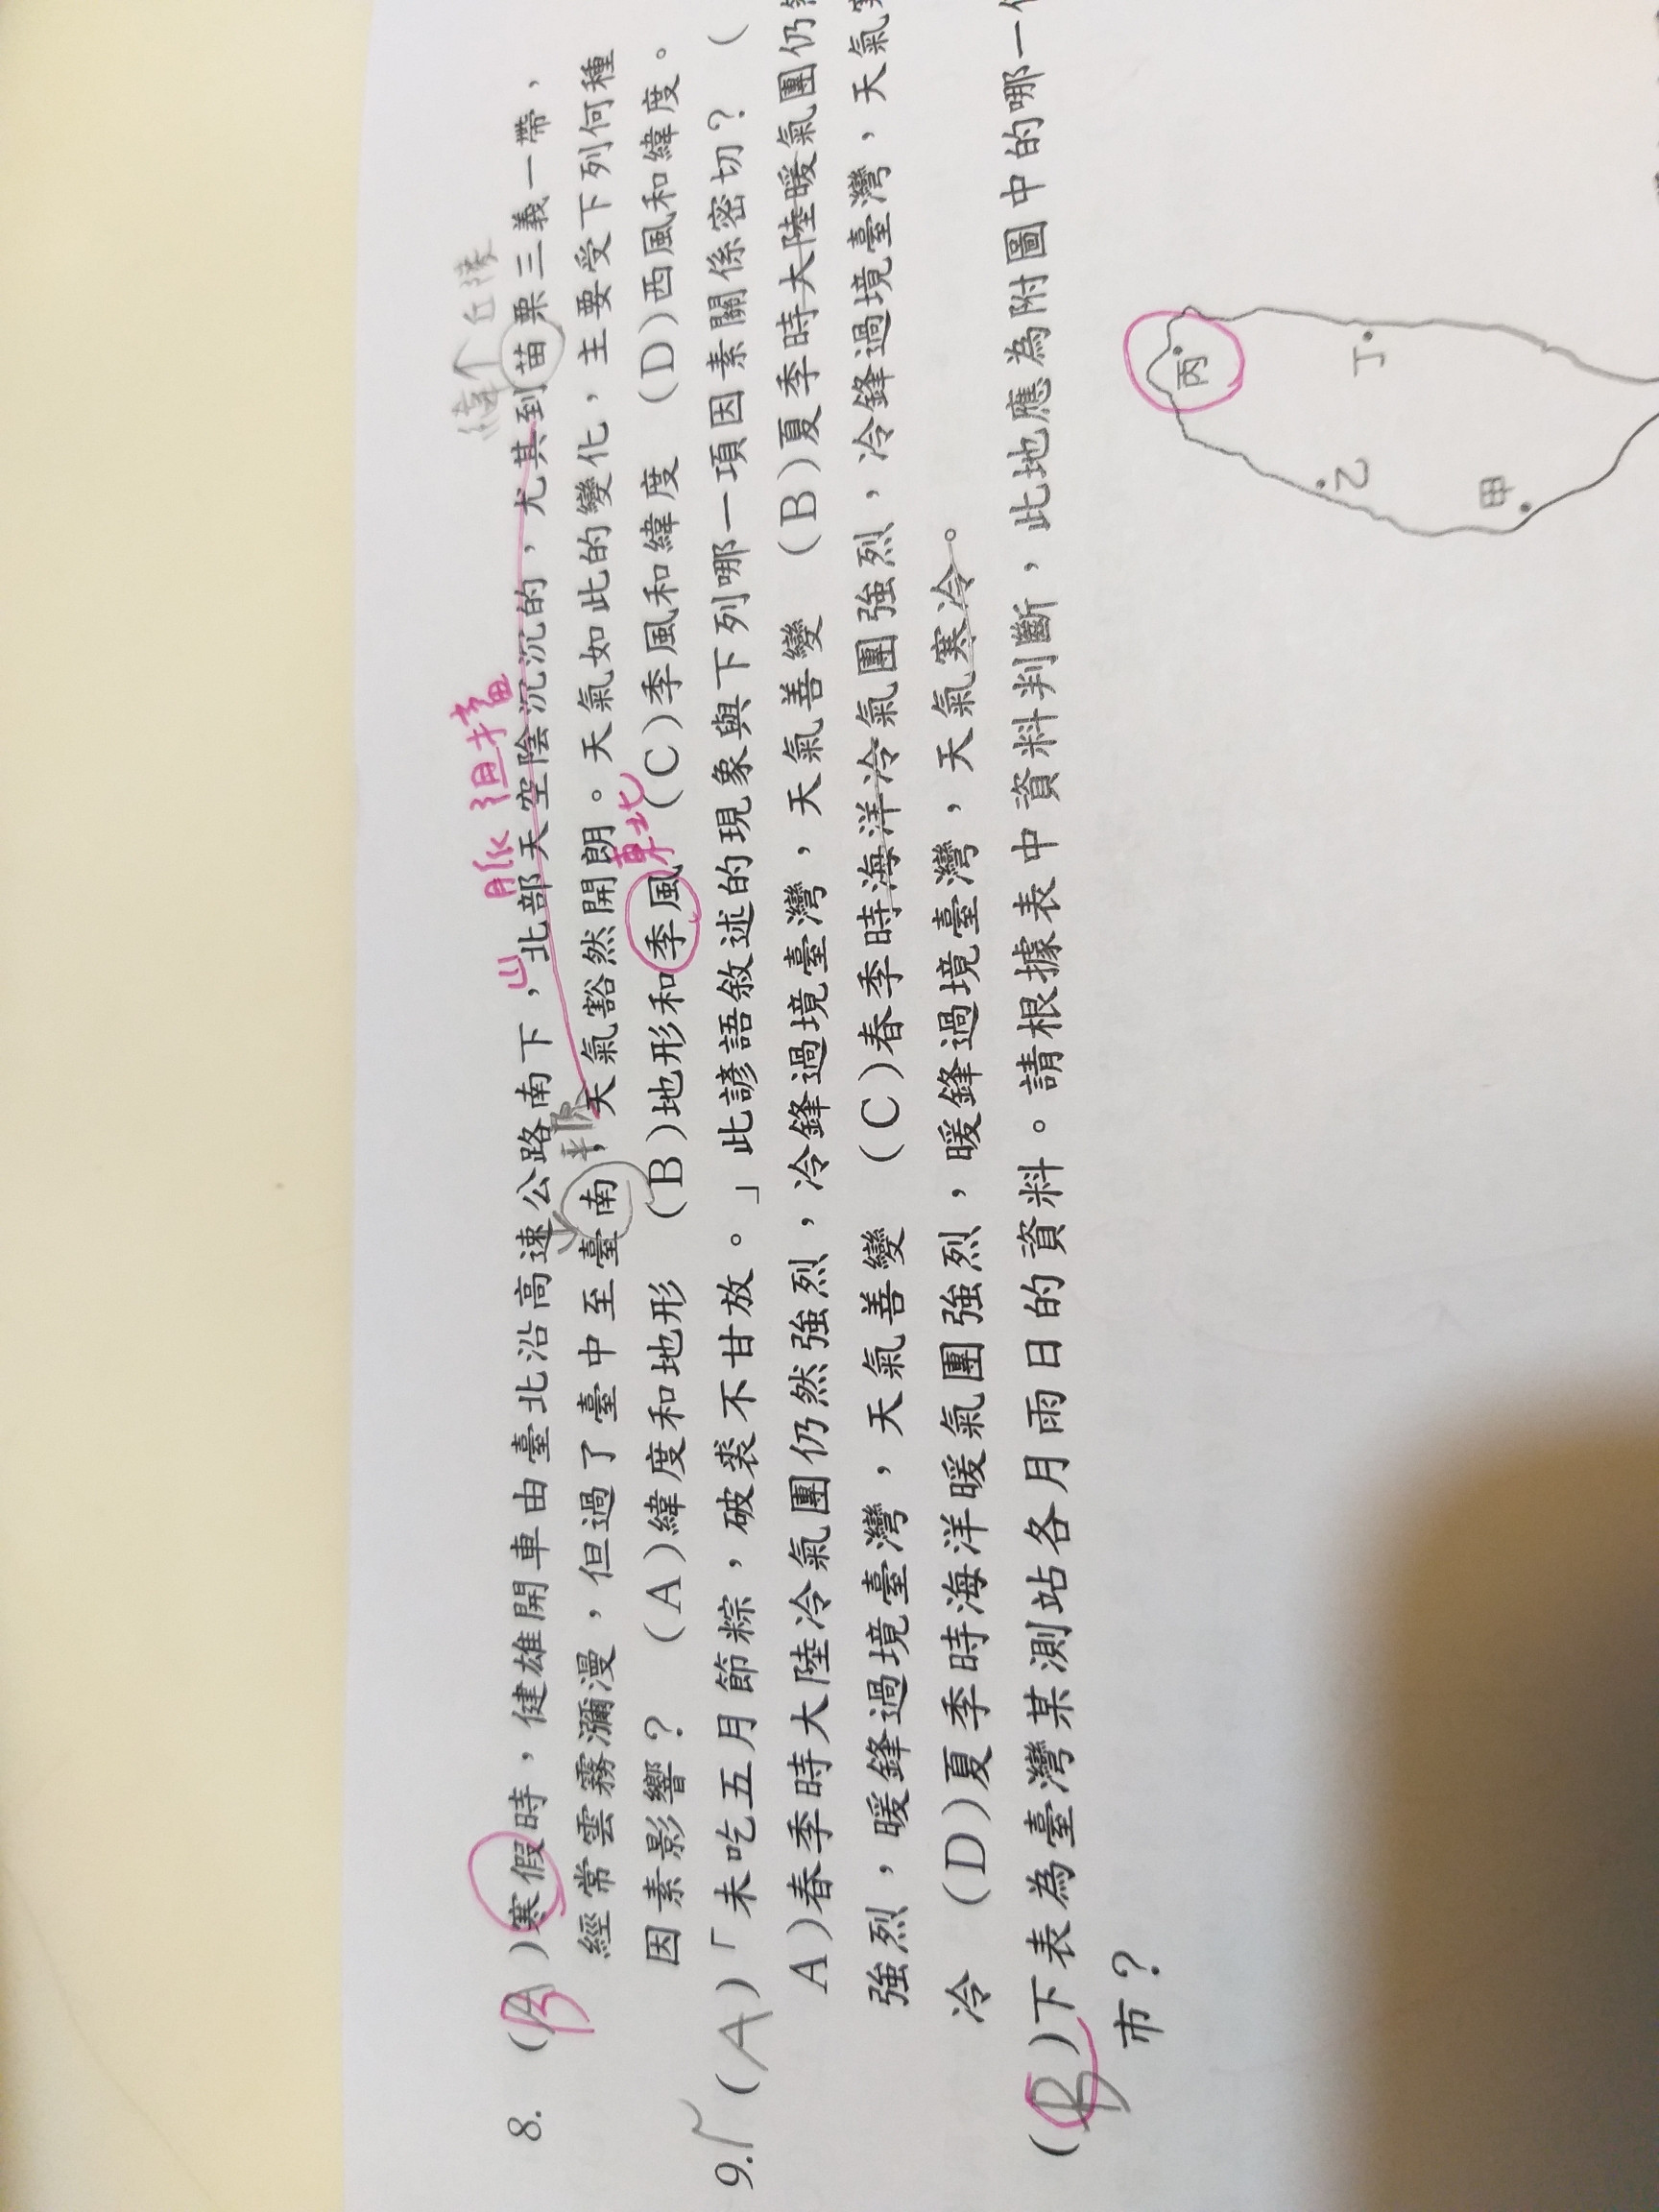 緯 丘陵
山脈阻擋
8. (B)寒假時，健雄開車由臺北沿高速公路南下，北部天空陰沉沉的，尤其到苗栗三義一帶，
經常雲霧瀰漫，但過了臺中至臺南，天氣豁然開朗。天氣如此的變化，主要受下列何種
東北
因素影響？ (A)緯度和地形 (B)地形和季風 (C)季風和緯度 (D)西風和緯度。
9. (A)「未吃五月節粽，破裘不甘放。」此諺語敘述的現象與下列哪一項因素關係密切？ (
A)春季時大陸冷氣團仍然強烈，冷鋒過境臺灣，天氣善變 (B)夏季時大陸暖氣團仍
強烈，暖鋒過境臺灣，天氣善變 (C)春季時海洋冷氣團強烈，冷鋒過境臺灣，天氣
冷 (D)夏季時海洋暖氣團強烈，暖鋒過境臺灣，天氣寒冷。
(B)下表為臺灣某測站各月雨日的資料。請根據表中資料判斷，此地應為附圖中的哪一
市？
丙
丁
乙
甲